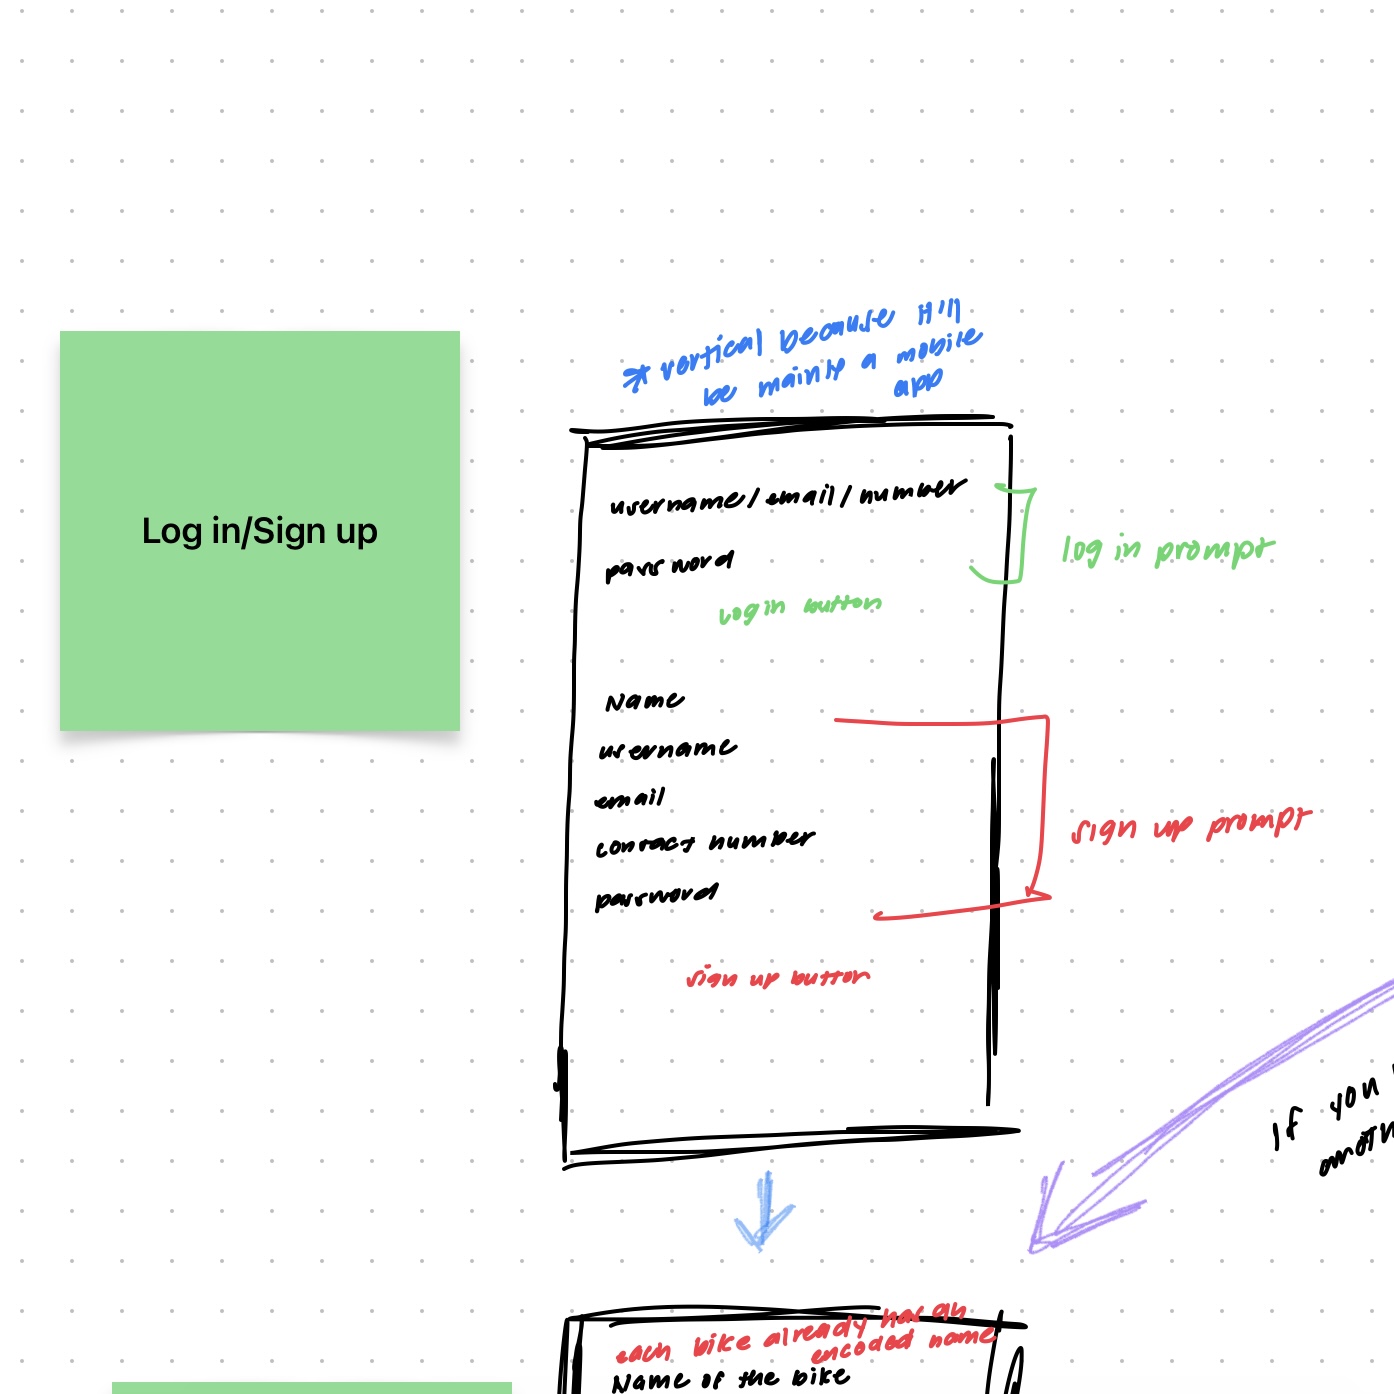 * vertical because it'll
be mainly a mobile
app
Log in/Sign up
username/email/number
password
log in prompt
login button
Name
username
email
contact number
password
sign up prompt
sign up button
If you
each bike already has an
encoded name
Name of the bike